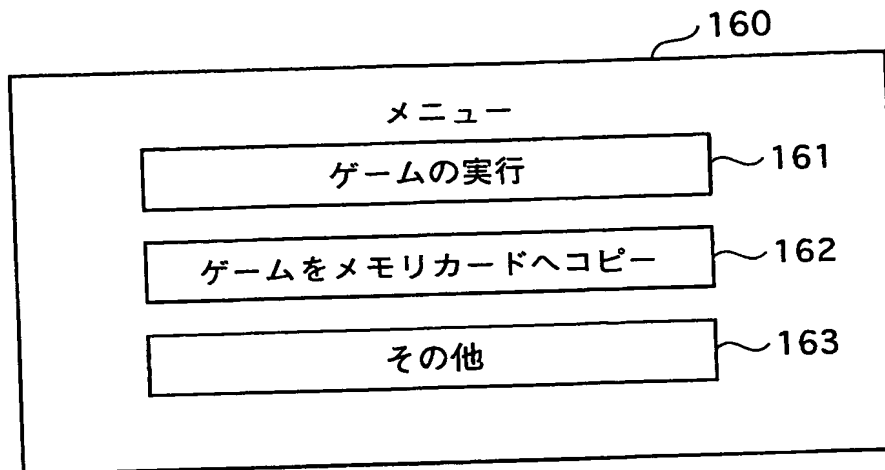 160
メニュー
ゲームの実行 161
ゲームをメモリカードへコピー 162
その他 163